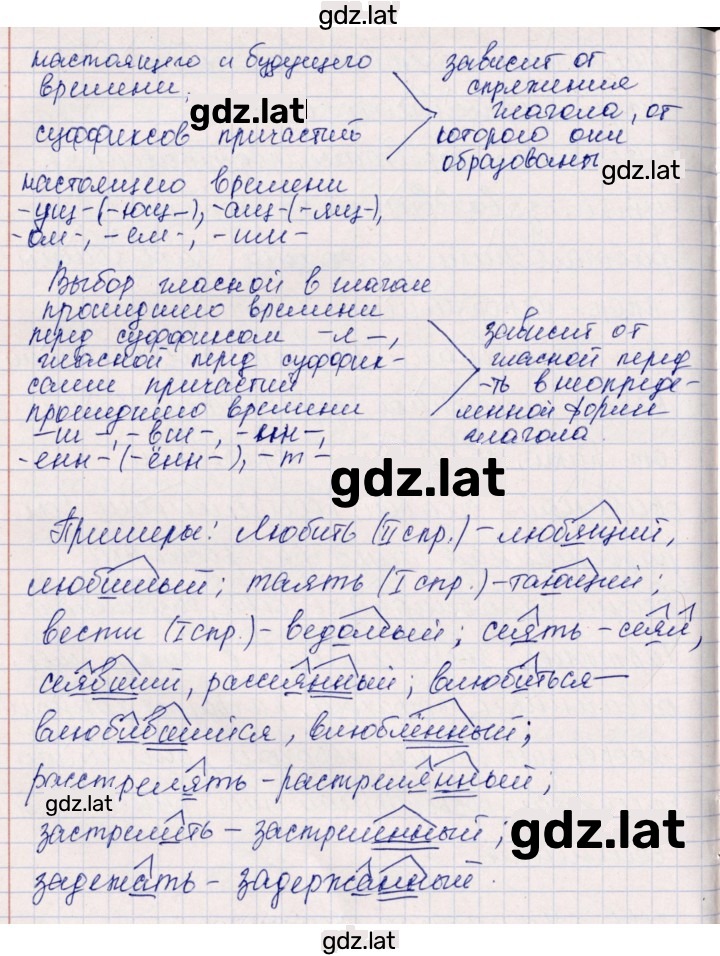 gdz.lat
настоящего и будущего
времени;
суффиксов причастий
настоящего времени
-ущ-(-ющ-), -ащ-(-ящ-),
-ом-, -ем-, -им-
зависит от
спряжения
глагола, от
которого они
образованы
gdz.lat
gdz.lat
Выбор гласной в глагол
прошедшего времени
перед суффиксом -л-,
гласной перед суффик-
сами причастий
прошедшего времени
-ш-, -вш-, -нн-,
-енн-(-ённ-), -т-
зависит от
гласной перед
-ть в неопреде-
ленной форме
глагола.
gdz.lat
Примеры: Любить (II спр.) - любящий,
любимый; таять (I спр.) - тающий;
вести (I спр.) - ведомый; сеять - сеял,
сеявший, рассеянный; влюбиться -
влюбившийся, влюблённый;
расстрелять - растрелянный;
gdz.lat
застрелить - застреленный;
gdz.lat
задежать - задержанный.
gdz.lat